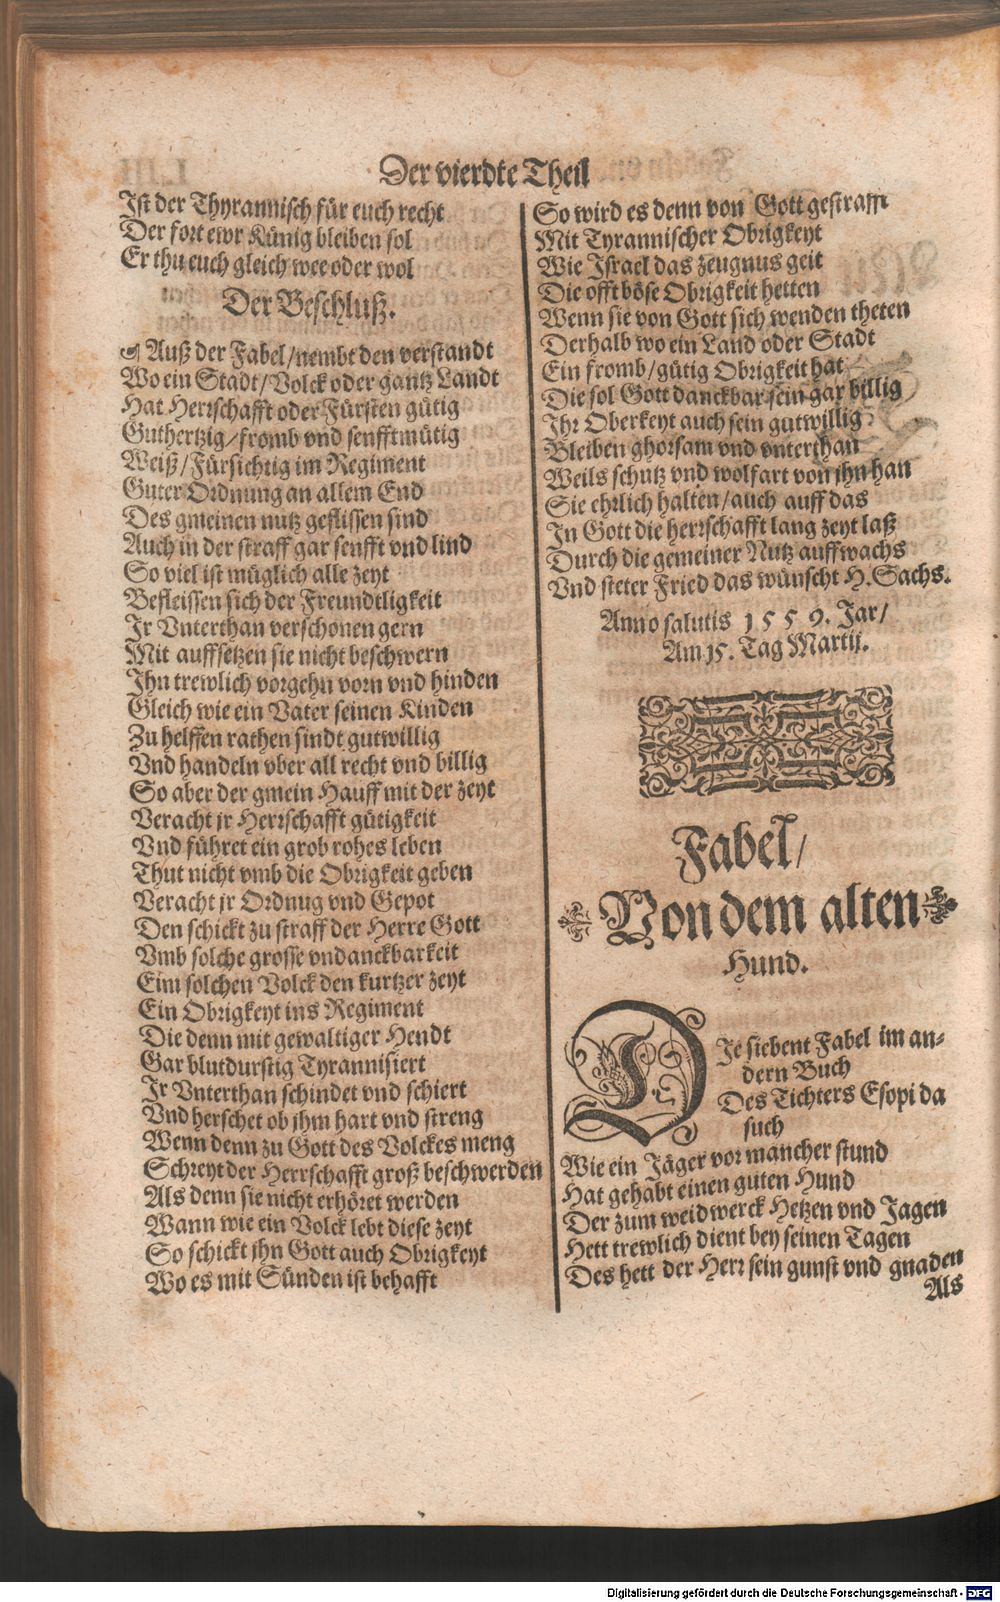 Der vierdte Theil
Ist der Thyrannisch für euch recht
Der fort ewr Künig bleiben sol
Er thu euch gleich wee oder wol
Der Beschluß.
☙ Auß der Fabel/nembt den verstandt
Wo ein Stadt/Volck oder gantz Landt
Hat Herrschafft oder Fürsten gütig
Guthertzig/fromb vnd senfftmütig
Weiß/Fürsichtig im Regiment
Guter Ordnung an allem End
Des gmeinen nutz geflissen sind
Auch in der straff gar senfft vnd lind
So viel ist müglich alle zeyt
Befleissen sich der Freundtligkeit
Jr Vnterthan verschonen gern
Mit auffsetzen sie nicht beschwern
Ihn trewlich vorgehn vorn vnd hinden
Gleich wie ein Vater seinen Kinden
Zu helffen rathen sindt gutwillig
Vnd handeln vber all recht vnd billig
So aber der gmein Hauff mit der zeyt
Veracht jr Herrschafft gütigkeit
Vnd führet ein grob rohes leben
Thut nicht vmb die Obrigkeit geben
Veracht jr Ordnug vnd Gepot
Den schickt zu straff der Herre Gott
Vmb solche grosse vndanckbarkeit
Eim solchen Volck den kurtzer zeyt
Ein Obrigkeyt ins Regiment
Die denn mit gewaltiger Hendt
Gar blutdurstig Tyrannisiert
Jr Vnterthan schindet vnd schiert
Vnd herschet ob jhm hart vnd streng
Wenn denn zu Gott des Volckes meng
Schreyt der Herrschafft groß beschwerden
Als denn sie nicht erhöret werden
Wann wie ein Volck lebt diese zeyt
So schickt jhn Gott auch Obrigkeyt
Wo es mit Sünden ist behafft
So wird es denn von Gott gestrafft
Mit Tyrannischer Obrigkeyt
Wie Israel das zeugnus geit
Die offt böse Obrigkeit hetten
Wenn sie von Gott sich wenden theten
Derhalb wo ein Land oder Stadt
Ein fromb/gütig Obrigkeit hat
Die sol Gott danckbar sein gar billig
Ihr Oberkeyt auch sein gutwillig
Bleiben ghorsam vnd vnterthan
Weils schutz vnd wolfart von jhn han
Sie ehrlich halten/auch auff das
In Gott die herrschafft lang zeyt laß
Durch die gemeiner Nutz auffwachs
Vnd steter Fried das wünscht H. Sachs.
Anno salutis 1559. Jar/
Am 15. Tag Martij.
Fabel/
Von dem alten
Hund.
DJe siebent Fabel im an-
dern Buch
Des Tichters Esopi da
such
Wie ein Jäger vor mancher stund
Hat gehabt einen guten Hund
Der zum weidwerck Hetzen vnd Jagen
Hett trewlich dient bey seinen Tagen
Des hett der Herr sein gunst vnd gnaden
Als
Digitalisierung gefördert durch die Deutsche Forschungsgemeinschaft - DFG